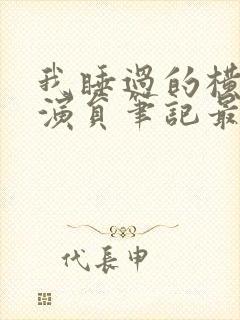 我睡過的橫
演員筆記最
代長申